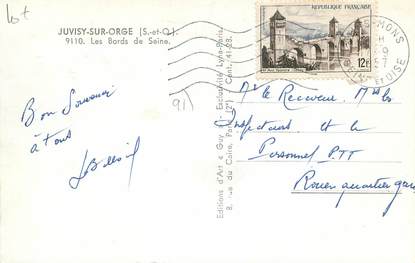 Lot
JUVISY-SUR-ORGE (S.-et-O.)
9110. Les Bords de Seine.
91)
Bon Souvenir
à tous
Editions d'Art « Guy » - Exclusivité Lyna-Paris
8, rue du Caire, Paris (2e) Cent. 41-23.
REPUBLIQUE FRANÇAISE
12F
MONS
ET OISE
Mr le Receveur, MM les
Inspecteurs et le
Personnel PTT
Rouen quartier gare